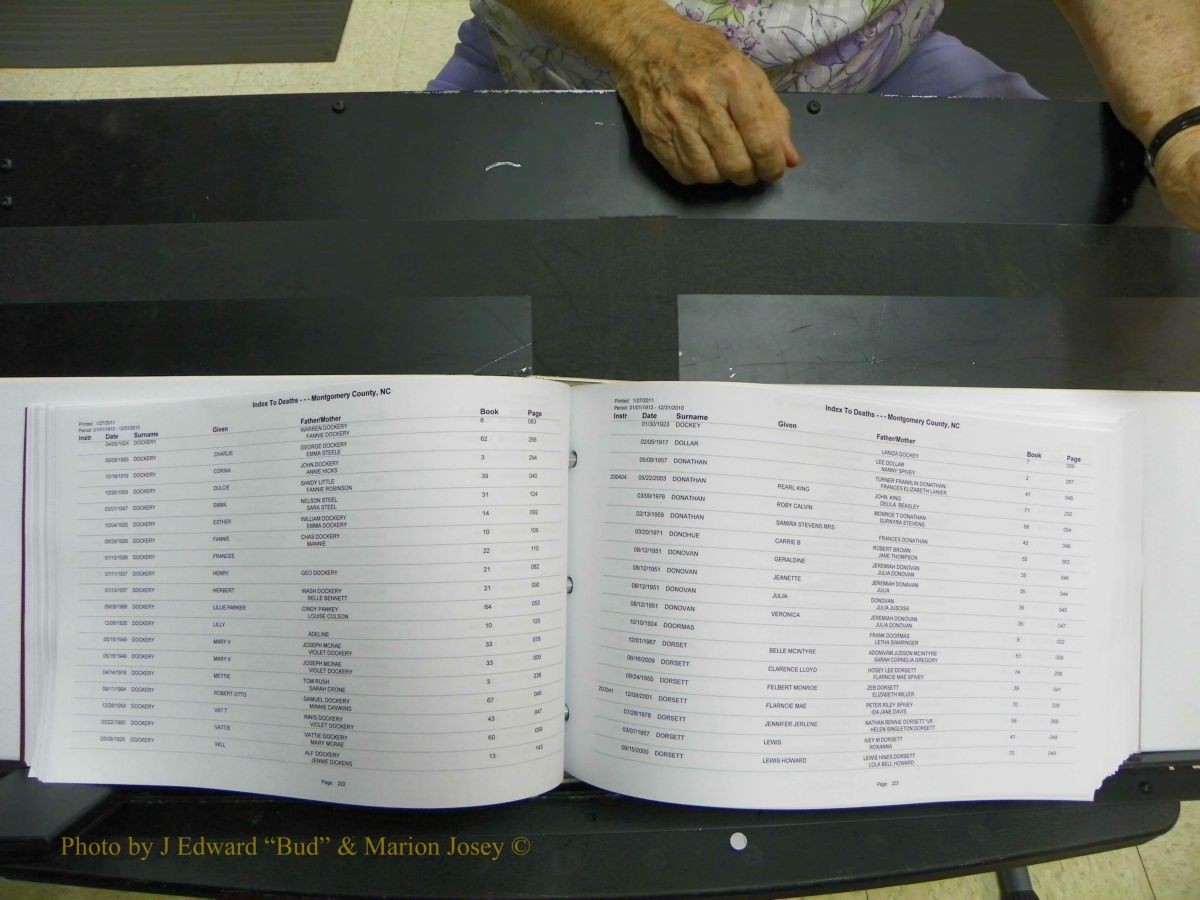 Index To Deaths - - - Montgomery County, NC
Printed 1/27/2011
Period 01/01/1913 - 12/31/2010
Instr Date Surname Given Father/Mother Book Page
04/05/1924 DOCKERY WARREN DOCKERY 8 083
FANNIE DOCKERY
DOCKERY CHARLIE GEORGE DOCKERY 62 266
EMMA STEELE
10/19/1919 DOCKERY CORINA JOHN DOCKERY 3 294
ANNIE HICKS
12/26/1955 DOCKERY DULCIE SANDY LITTLE 39 040
FANNIE ROBINSON
03/21/1947 DOCKERY EMMA NELSON STEEL 31 124
SARA STEEL
10/04/1930 DOCKERY ESTHER WILLIAM DOCKERY 14 092
EMMA DOCKERY
DOCKERY FANNIE CHAS DOCKERY 10 109
MANNIE
01/15/1938 DOCKERY FRANCES 22 110
07/11/1937 DOCKERY HENRY GEO DOCKERY 21 082
01/13/1937 DOCKERY HERBERT WASH DOCKERY 21 090
BELLE BENNETT
DOCKERY LILLIE PARKER CINDY PANKEY 64 053
LOUISE COLSON
DOCKERY LILLY 10 125
ADELINE
05/16/1949 DOCKERY MARY V JOSEPH MCRAE 33 078
VIOLET DOCKERY
05/16/1949 DOCKERY MARY V JOSEPH MCRAE 33 009
VIOLET DOCKERY
04/14/1918 DOCKERY METTIE TOM RUSH 3 236
SARAH CRONE
09/11/1994 DOCKERY ROBERT OTTO SAMUEL DOCKERY 67 045
MINNIE DAWKINS
12/28/1959 DOCKERY VAT T INNIS DOCKERY 43 047
VIOLET DOCKERY
03/22/1980 DOCKERY VATTIE VATTIE DOCKERY 60 059
MARY MCRAE
05/08/1929 DOCKERY WILL ALF DOCKERY 13 143
JENNIE DICKENS
Page: 222
Index To Deaths - - - Montgomery County, NC
Printed 1/27/2011
Period 01/01/1913 - 12/31/2010
Instr Date Surname Given Father/Mother Book Page
01/30/1923 DOCKEY LANIZA DOCKEY 7 009
02/05/1917 DOLLAR LEE DOLLAR 2 287
NANNY SPIVEY
05/08/1957 DONATHAN TURNER FRANKLIN DONATHAN 41 046
FRANCES ELIZABETH LANIER
200404 05/22/2003 DONATHAN PEARL KING JOHN KING 71 230
DELILA BEASLEY
03/09/1976 DONATHAN ROBY CALVIN MONROE T DONATHAN 58 054
SURNYRA STEVENS
02/13/1959 DONATHAN SAMIRA STEVENS MRS 43 048
FRANCES DONATHAN
03/20/1971 DONOHUE CARRIE B ROBERT BROWN 55 063
JANE THOMPSON
08/12/1951 DONOVAN GERALDINE JEREMIAH DONOVAN 35 046
JULIA DONOVAN
08/12/1951 DONOVAN JEANETTE JEREMIAH DONAVAN 35 044
JULIA
08/12/1951 DONOVAN JULIA DONOVAN 35 045
JULIA JUSOISA
08/12/1951 DONOVAN VERONICA JEREMIAH DONOVAN 35 047
JULIA DONOVAN
10/10/1924 DOORMAS FRANK DOORMAS 8 032
LETHA SWARINGER
12/01/1967 DORSET BELLE MCINTYRE ADONIVAM JUDSON MCINTYRE 51 058
SARAH CORNELIA GREGORY
06/16/2009 DORSETT CLARENCE LLOYD HOSEY LEE DORSETT 74 208
FLARNCIE MAE SPIVEY
09/24/1955 DORSETT FELBERT MONROE ZEB DORSETT 39 041
ELIZABETH MILLER
200041 12/09/2001 DORSETT FLARNCIE MAE PETER RILEY SPIVEY 70 226
IDA JANE DAVIS
07/28/1978 DORSETT JENNIFER JERLENE NATHAN BENNIE DORSETT *JR 59 066
HELEN SINGLETON DORSETT
03/07/1957 DORSETT LEWIS IVEY M DORSETT 41 048
ROXANNA
09/15/2000 DORSETT LEWIS HOWARD LEWIS HINES DORSETT 70 049
LOLA BELL HOWARD
Page: 223
Photo by J Edward “Bud” & Marion Josey ©